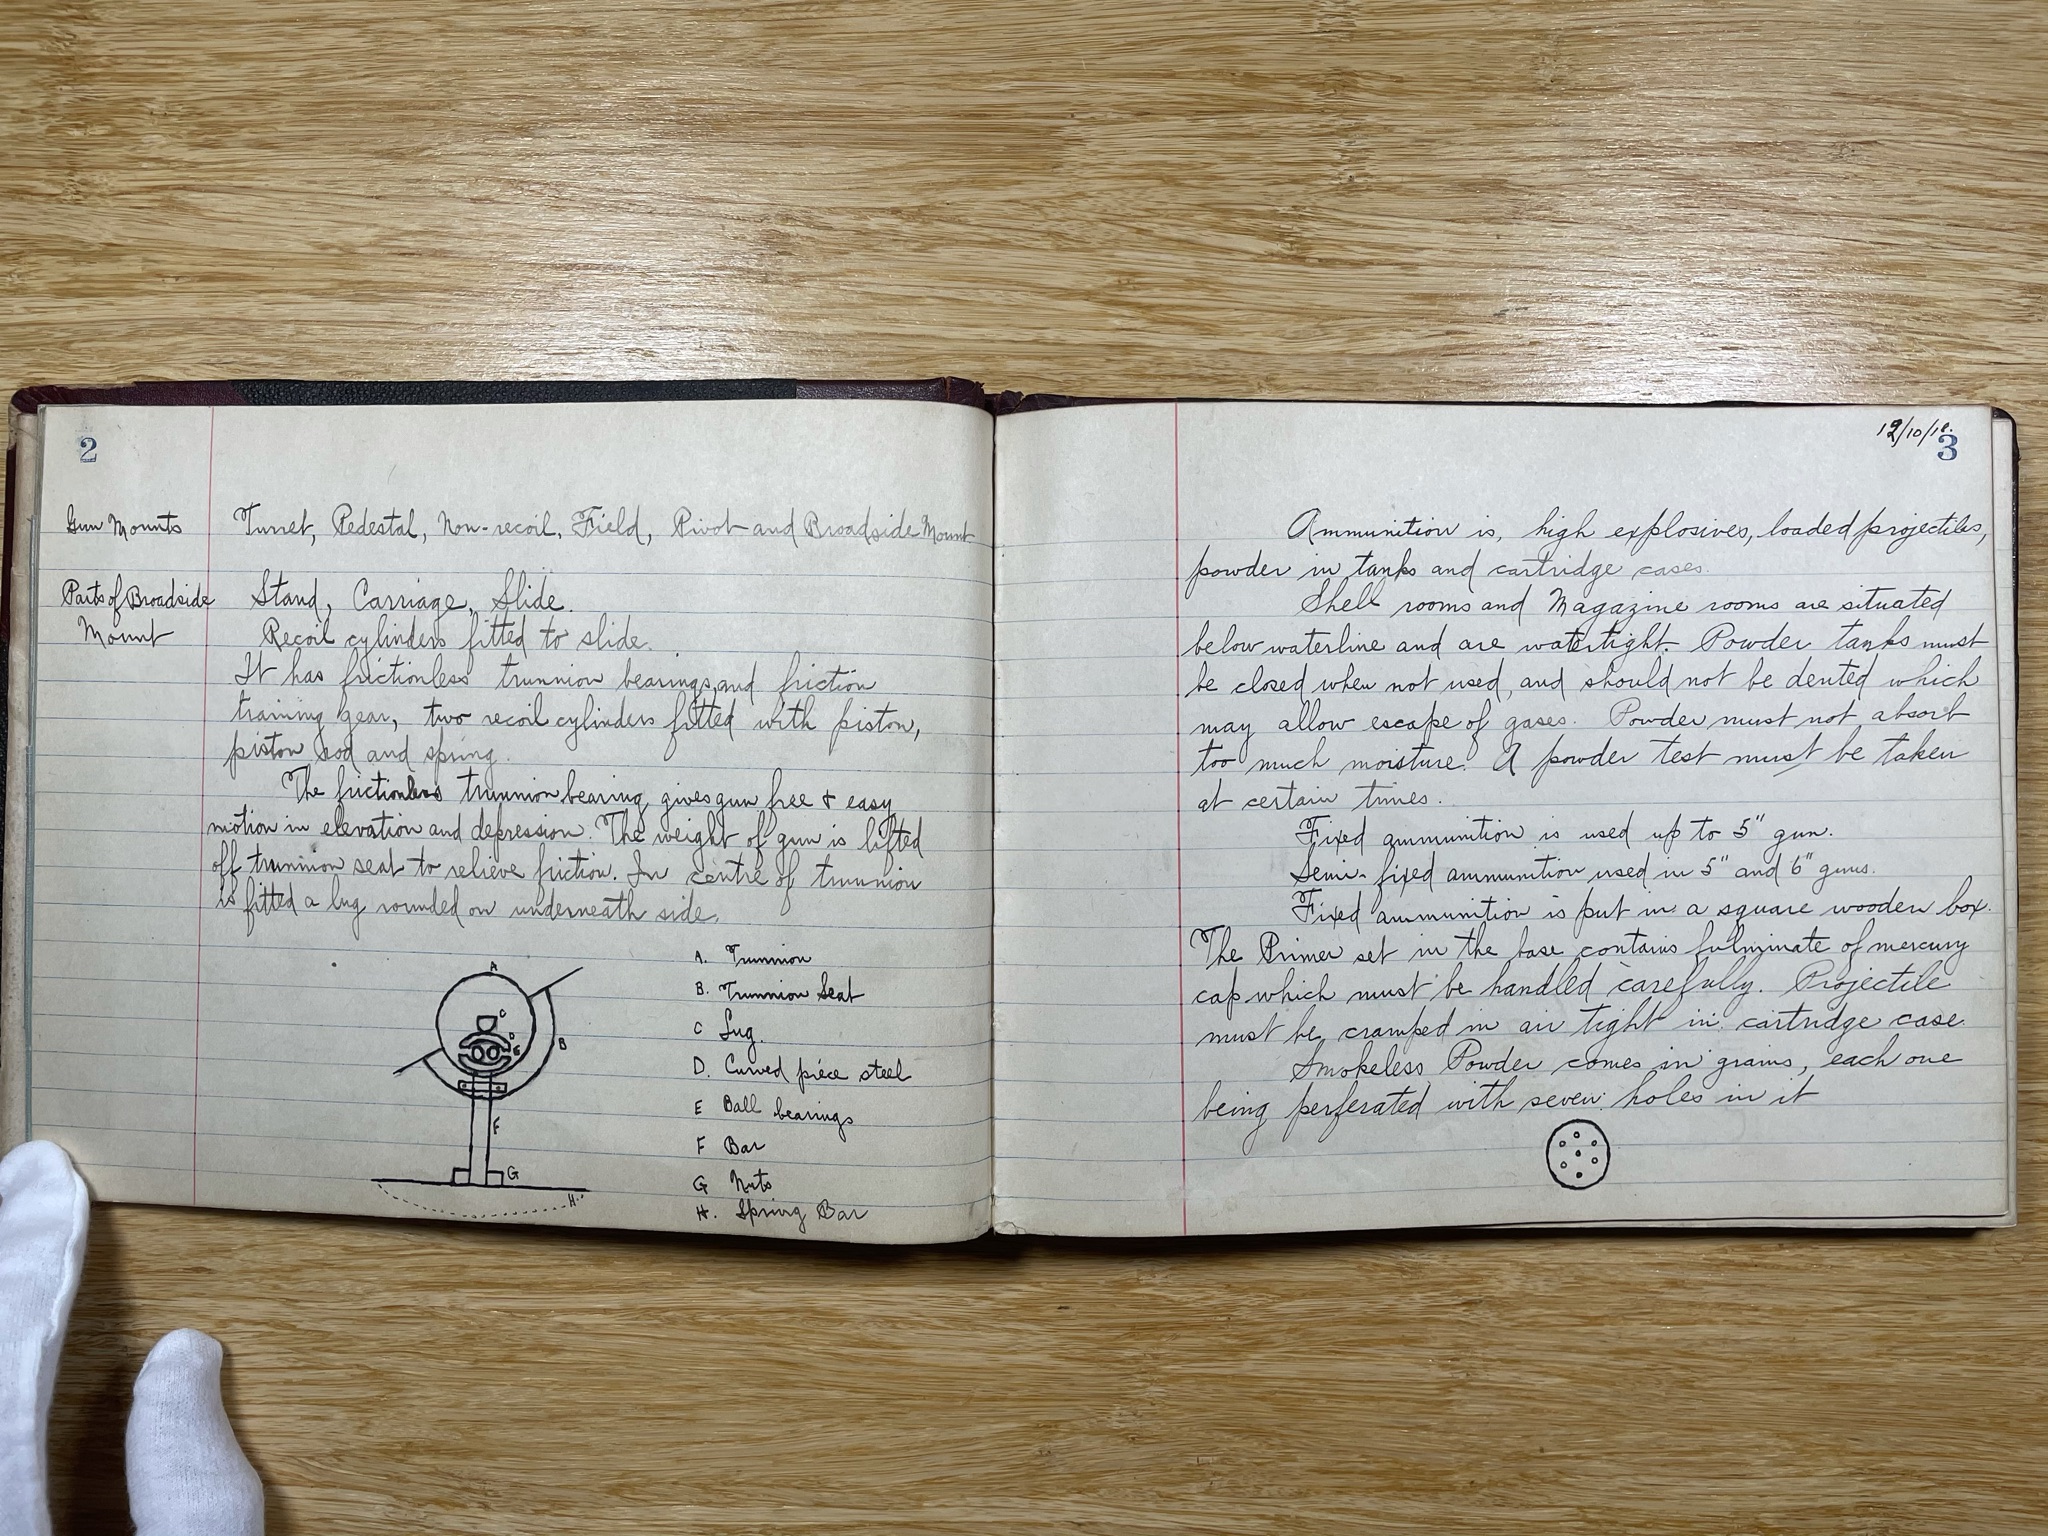 2
Gun Mounts Turret, Pedestal, Non-recoil, Field, Pivot and Broadside Mount
Parts of Broadside Stand, Carriage, Slide.
Mount Recoil cylinders fitted to slide.
It has frictionless trunnion bearings, and friction
training gear, two recoil cylinders fitted with piston,
piston rod and spring.
The frictionless trunnion bearing gives gun free & easy
motion in elevation and depression. The weight of gun is lifted
off trunnion seat to relieve friction. In centre of trunnion
is fitted a lug rounded on underneath side.
A
C
D
E
B
F
G
H
A. Trunnion
B. Trunnion Seat
C Lug.
D. Curved piece steel
E Ball bearings
F Bar
G Nuts
H. Spring Bar
3
Ammunition is, high explosives, loaded projectiles,
powder in tanks and cartridge cases.
Shell rooms and Magazine rooms are situated
below waterline and are watertight. Powder tanks must
be closed when not used, and should not be dented which
may allow escape of gases. Powder must not absorb
too much moisture. A powder test must be taken
at certain times.
Fixed ammunition is used up to 5" gun.
Semi-fixed ammunition used in 5" and 6" guns.
Fixed ammunition is put in a square wooden box.
The Primer set in the base contains fulminate of mercury
cap which must be handled carefully. Projectile
must be cramped in air tight in cartridge case.
Smokeless Powder comes in grains, each one
being perferated with seven holes in it